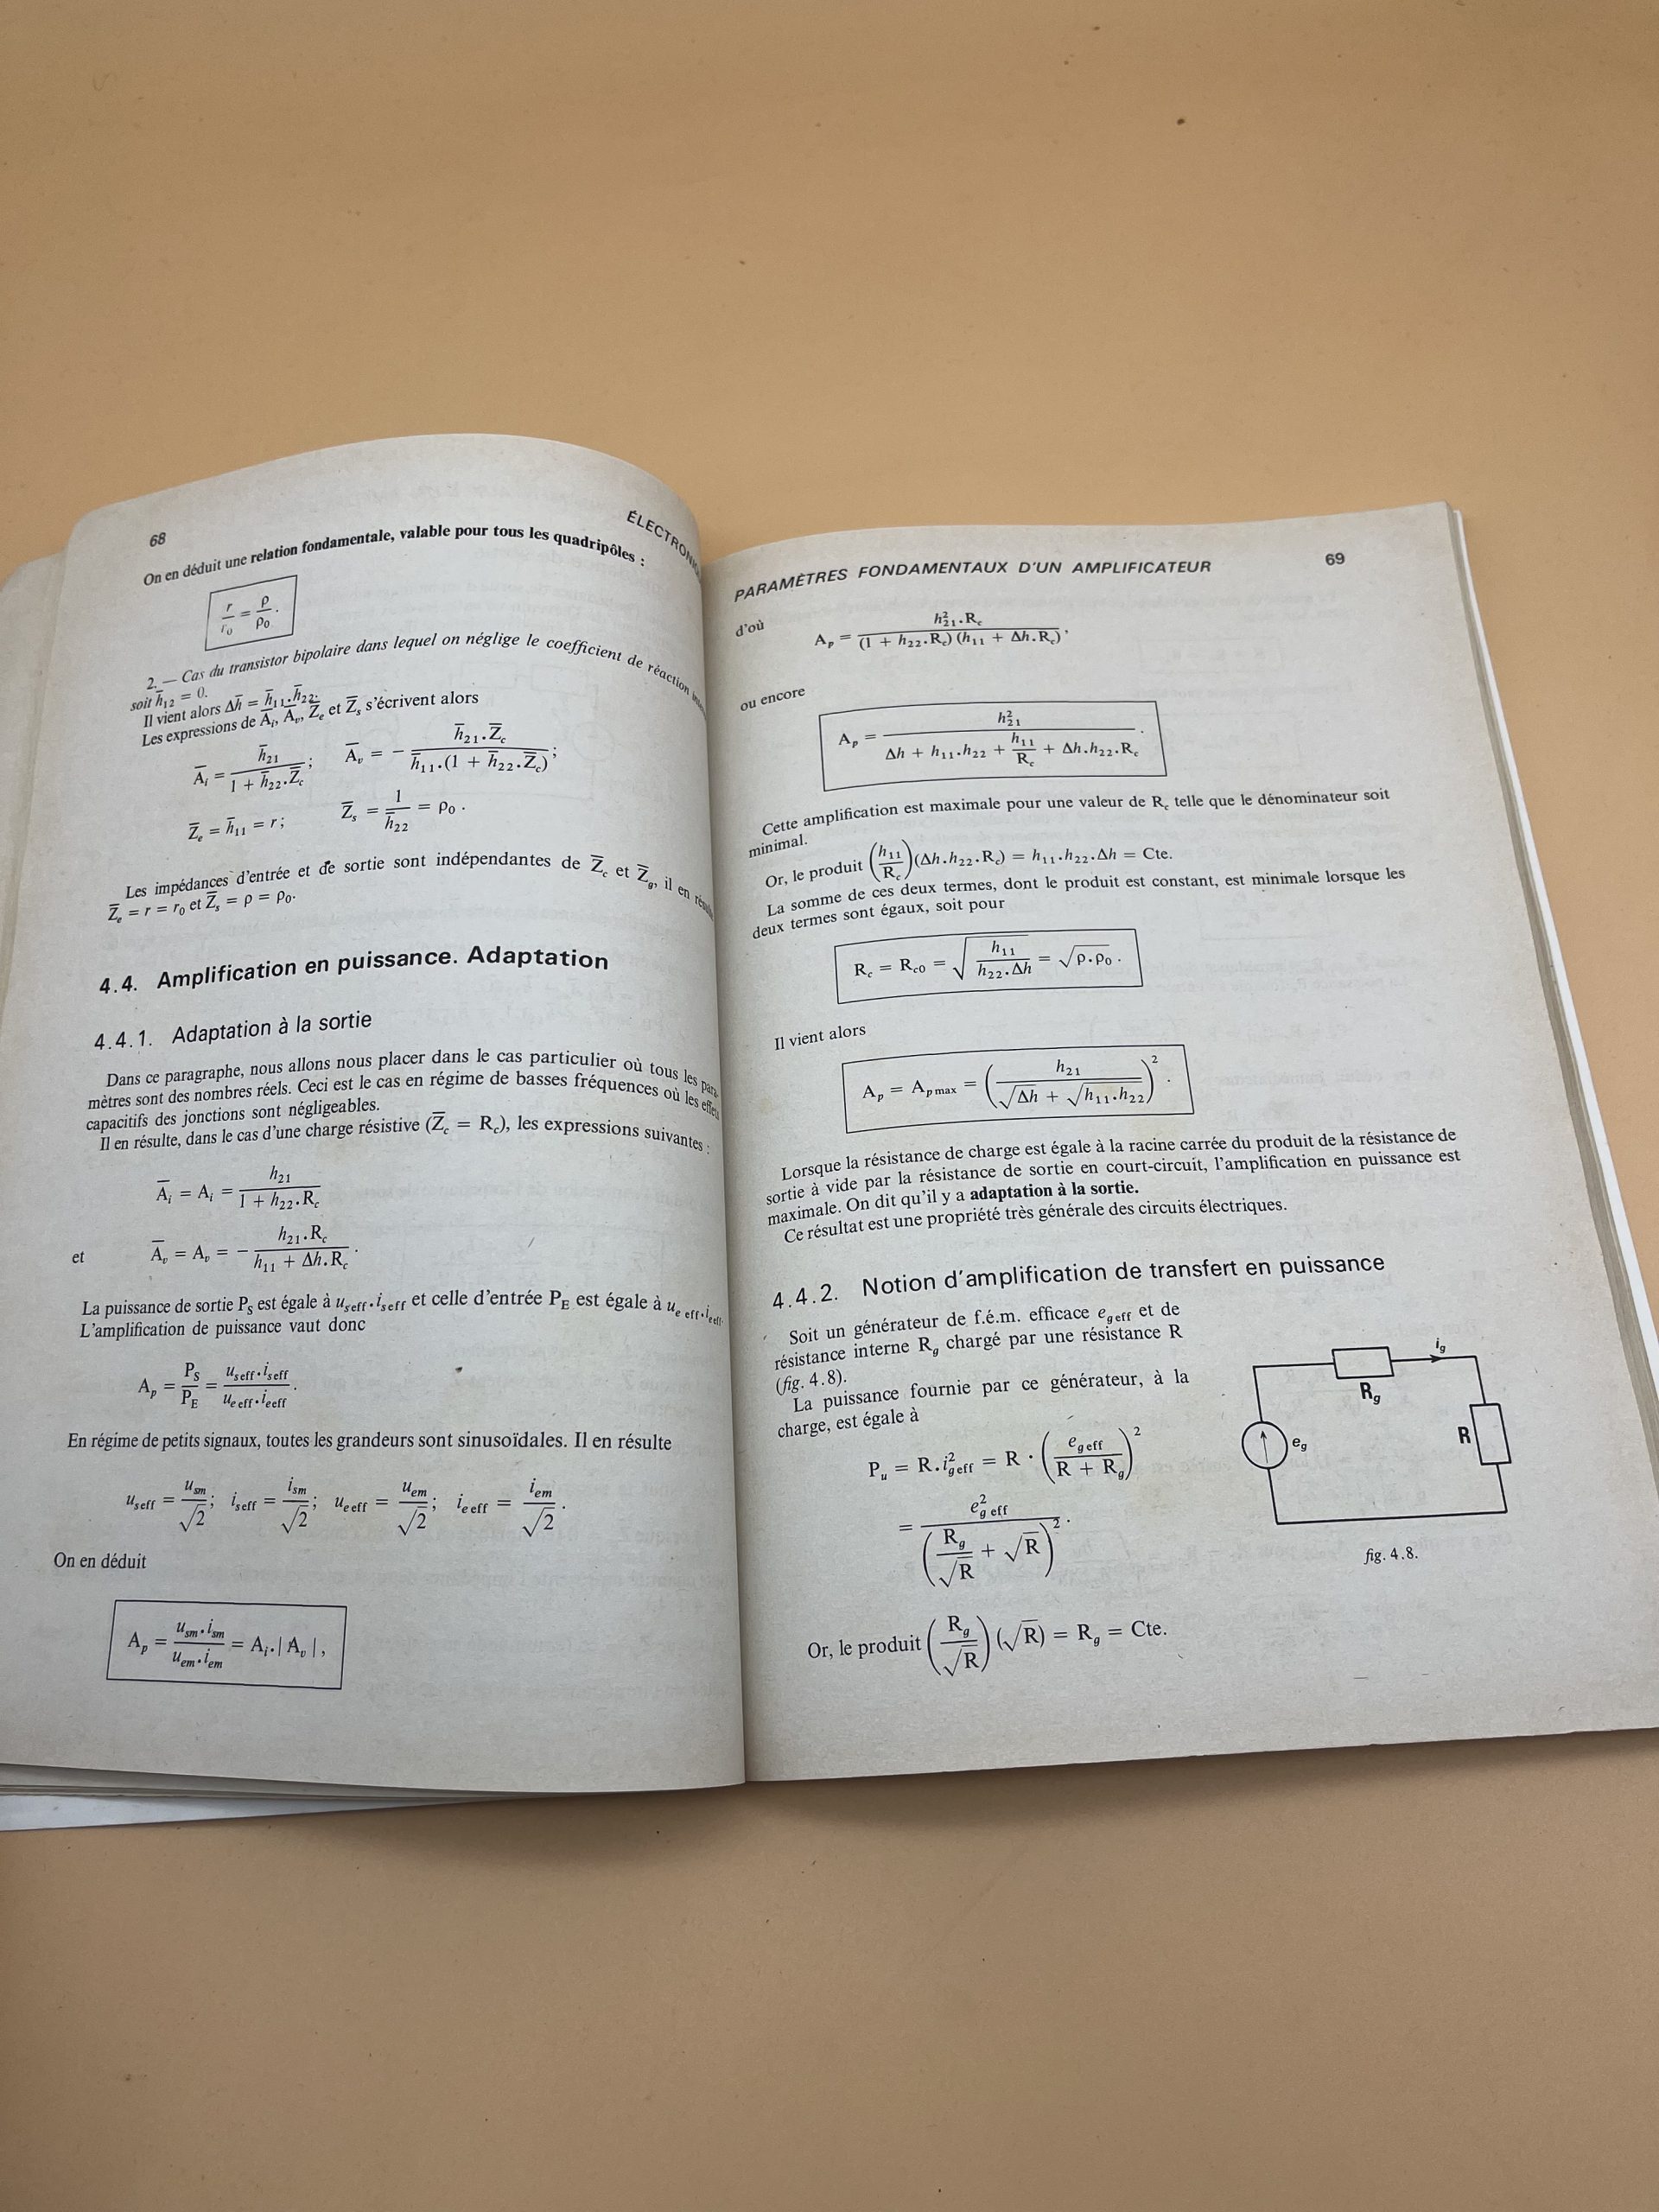 68
ÉLECTRONIQ
On en déduit une relation fondamentale, valable pour tous les quadripôles :
r/r₀ = ρ/ρ₀ .
2. — Cas du transistor bipolaire dans lequel on néglige le coefficient de réaction
soit h̄₁₂ = 0.
Il vient alors Δh̄ = h̄₁₁.h̄₂₂.
Les expressions de A̅ᵢ, A̅ᵥ, Z̅ₑ et Z̅ₛ s'écrivent alors
A̅ᵢ = h̄₂₁ / (1 + h̄₂₂.Z̅_c) ; A̅ᵥ = − h̄₂₁.Z̅_c / (h̄₁₁.(1 + h̄₂₂.Z̅_c)) ;
Z̅ₑ = h̄₁₁ = r ; Z̅ₛ = 1/h̄₂₂ = ρ₀ .
Les impédances d'entrée et de sortie sont indépendantes de Z̅_c et Z̅_g, il en
Z̅ₑ = r = r₀ et Z̅ₛ = ρ = ρ₀.
4.4. Amplification en puissance. Adaptation
4.4.1. Adaptation à la sortie
Dans ce paragraphe, nous allons nous placer dans le cas particulier où tous les para-
mètres sont des nombres réels. Ceci est le cas en régime de basses fréquences où les
capacitifs des jonctions sont négligeables.
Il en résulte, dans le cas d'une charge résistive (Z̅_c = R_c), les expressions suivantes :
A̅ᵢ = Aᵢ = h₂₁ / (1 + h₂₂.R_c)
et A̅ᵥ = Aᵥ = − h₂₁.R_c / (h₁₁ + Δh.R_c) .
La puissance de sortie P_S est égale à u_s eff.i_s eff et celle d'entrée P_E est égale à u_e eff.i_e eff.
L'amplification de puissance vaut donc
A_p = P_S/P_E = u_s eff.i_s eff / u_e eff.i_e eff .
En régime de petits signaux, toutes les grandeurs sont sinusoïdales. Il en résulte
u_s eff = u_sm/√2 ; i_s eff = i_sm/√2 ; u_e eff = u_em/√2 ; i_e eff = i_em/√2 .
On en déduit
A_p = u_sm.i_sm / u_em.i_em = Aᵢ.| Aᵥ | ,
PARAMÈTRES FONDAMENTAUX D'UN AMPLIFICATEUR
69
d'où A_p = h²₂₁.R_c / ((1 + h₂₂.R_c) (h₁₁ + Δh.R_c)) ,
ou encore
A_p = h²₂₁ / (Δh + h₁₁.h₂₂ + h₁₁/R_c + Δh.h₂₂.R_c) .
Cette amplification est maximale pour une valeur de R_c telle que le dénominateur soit
minimal.
Or, le produit (h₁₁/R_c)(Δh.h₂₂.R_c) = h₁₁.h₂₂.Δh = Cte.
La somme de ces deux termes, dont le produit est constant, est minimale lorsque les
deux termes sont égaux, soit pour
R_c = R_c0 = √(h₁₁ / (h₂₂.Δh)) = √(ρ.ρ₀) .
Il vient alors
A_p = A_p max = (h₂₁ / (√Δh + √(h₁₁.h₂₂)))² .
Lorsque la résistance de charge est égale à la racine carrée du produit de la résistance de
sortie à vide par la résistance de sortie en court-circuit, l'amplification en puissance est
maximale. On dit qu'il y a adaptation à la sortie.
Ce résultat est une propriété très générale des circuits électriques.
4.4.2. Notion d'amplification de transfert en puissance
Soit un générateur de f.é.m. efficace e_g eff et de
résistance interne R_g chargé par une résistance R
(fig. 4.8).
La puissance fournie par ce générateur, à la
charge, est égale à
P_u = R.i²_g eff = R · (e_g eff / (R + R_g))²
= e²_g eff / (R_g/√R + √R)² .
Or, le produit (R_g/√R) (√R) = R_g = Cte.
i_g
R_g
e_g
R
fig. 4.8.